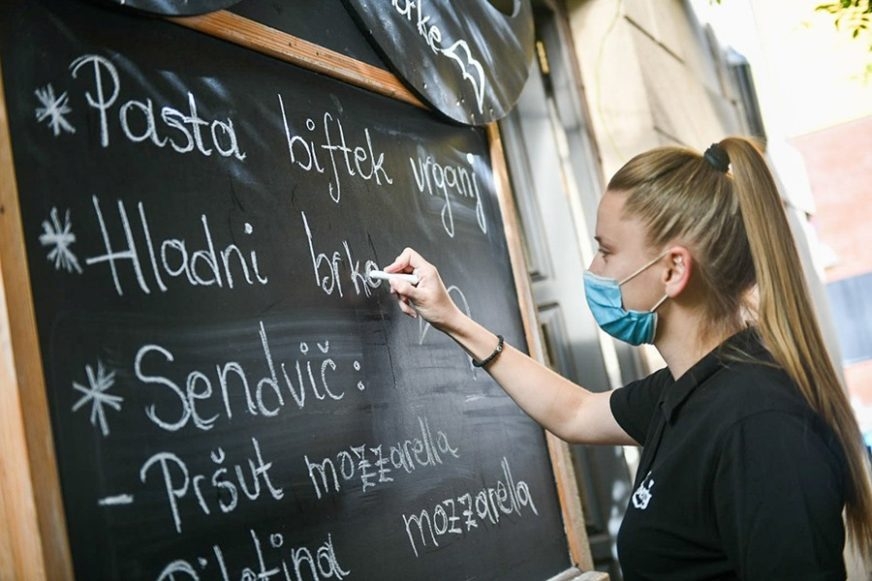 brke
* Pasta biftek vrganj
* Hladni brke
* Sendvič:
- Pršut mozzarella
mozzarella